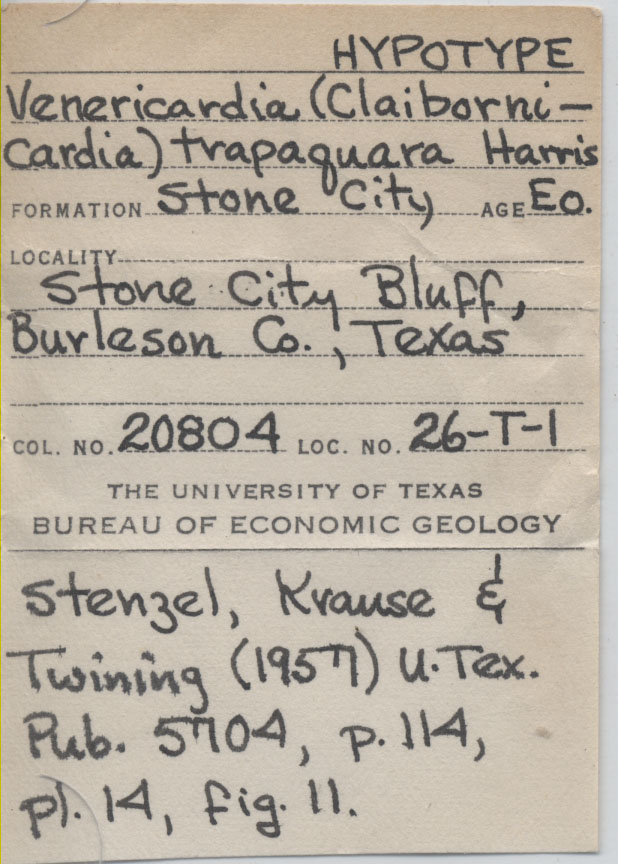 HYPOTYPE
Venericardia (Claiborni-
cardia) trapaquara Harris
FORMATION Stone City AGE Eo.
LOCALITY
Stone City Bluff,
Burleson Co., Texas
COL. NO. 20804 LOC. NO. 26-T-1
THE UNIVERSITY OF TEXAS
BUREAU OF ECONOMIC GEOLOGY
Stenzel, Krause &
Twining (1957) U.Tex.
Pub. 5704, p. 114,
pl. 14, fig. 11.